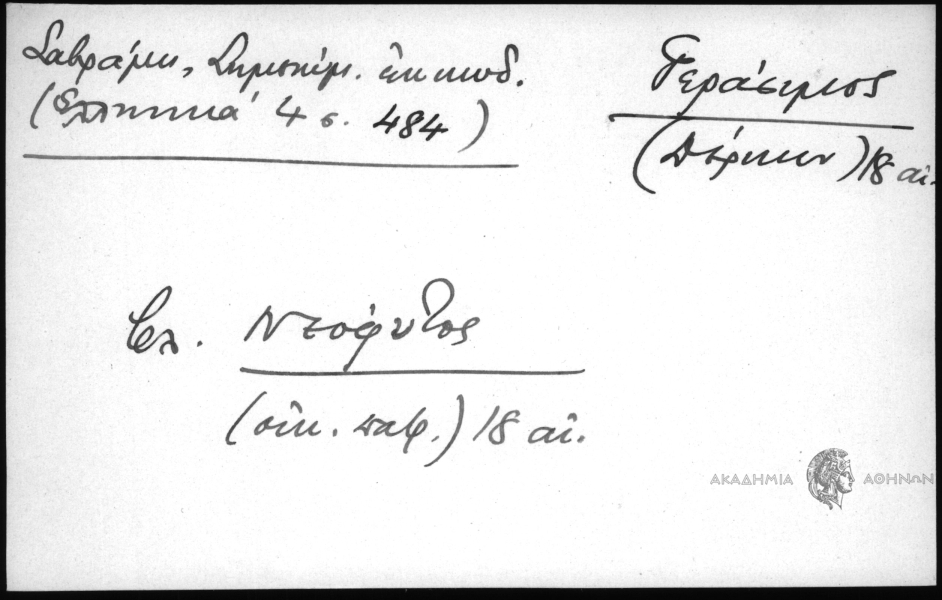 Σαβράμη, Σημειώμ. ἐκ κωδ.
(Ἑλληνικά 4 σ. 484)
Γεράσιμος
(Δέρκων) 18 αἰ.
βλ. Νεόφυτος
(οἰκ. πατρ.) 18 αἰ.
ΑΚΑΔΗΜΙΑ ΑΘΗΝΩΝ